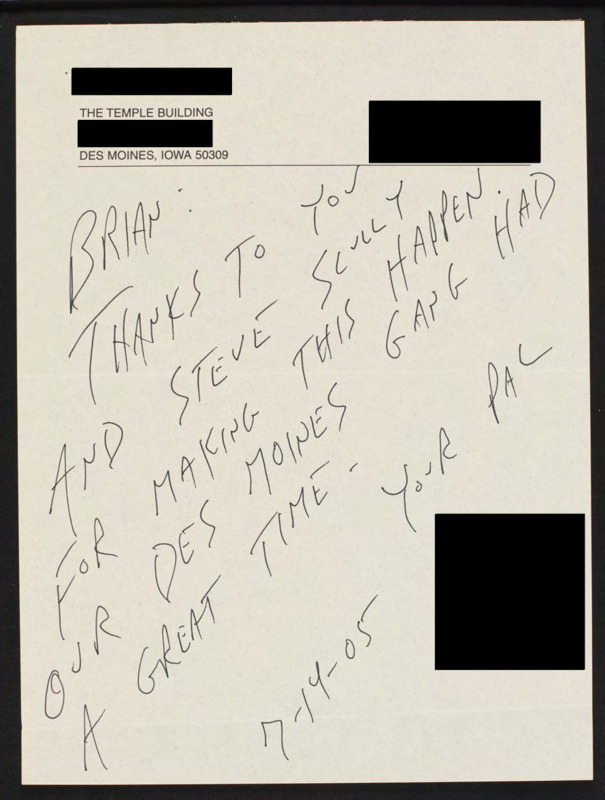 THE TEMPLE BUILDING
DES MOINES, IOWA 50309
BRIAN:
THANKS TO YOU
AND STEVE SCULLY
FOR MAKING THIS HAPPEN.
OUR DES MOINES GANG HAD
A GREAT TIME.
YOUR PAL
7-14-05